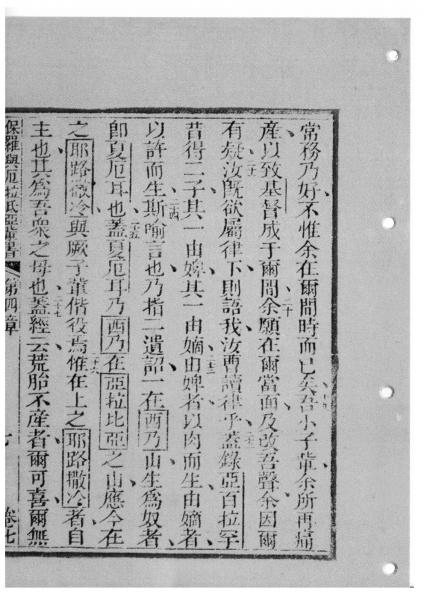 常務乃好不惟余在爾間時而已矣吾小子輩余所再痛
產以致基督成于爾間余願在爾當面及改吾聲余因爾
有疑汝旣欲屬律下則語我汝曹讀律乎蓋錄亞百拉罕
昔得二子其一由婢其一由嫡由婢者以肉而生由嫡者
以許而生斯喻言也乃指二遺詔一在西乃山生為奴者
卽夏厄耳也蓋夏厄耳乃西乃在亞拉比亞之山應今在
之耶路撒冷與厥子輩偕役焉惟在上之耶路撒冷者自
主也其為吾衆之母也蓋經云荒胎不產者爾可喜爾無
保羅與厄拉氏亞輩書 第四章 七 卷七